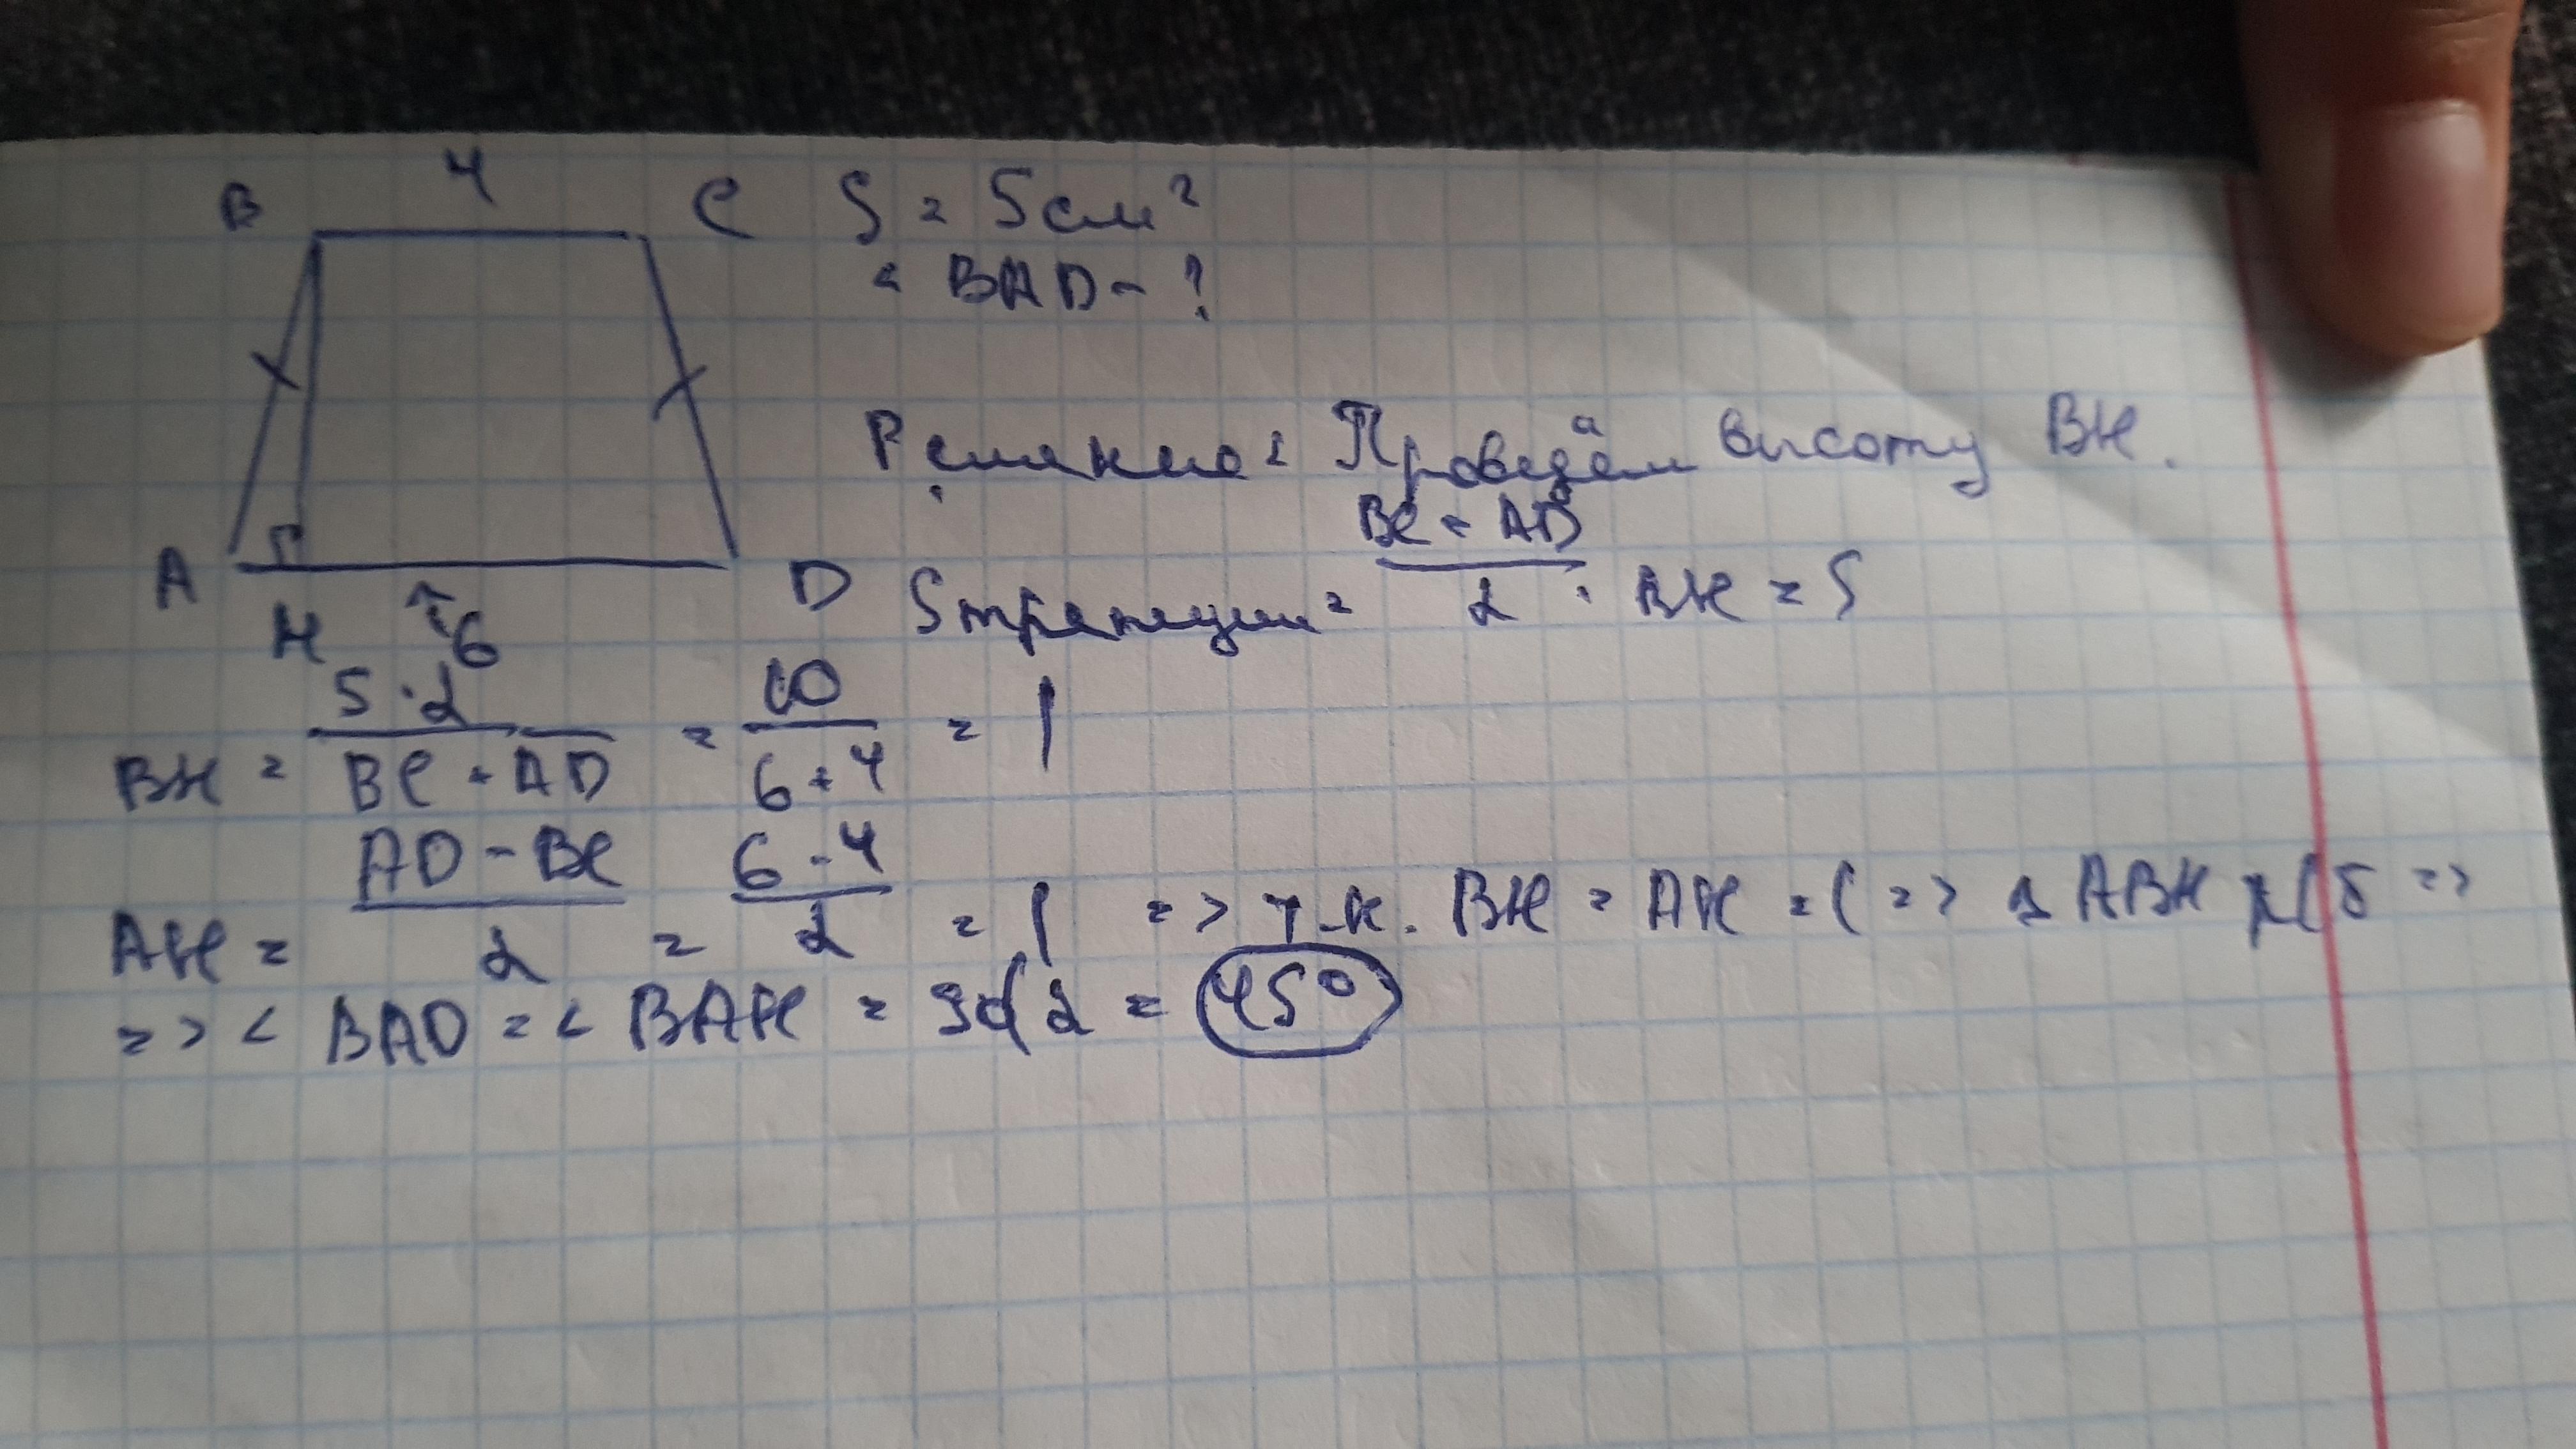 4
B C S = 5 см²
< BAD - ?
Решение: Проведём высоту BH.
A H 6 D
Sтрапеции = BC + AD / 2 · BH = 5
BH = 5 · 2 / BC + AD = 10 / 6 + 4 = 1
AH = AD - BC / 2 = 6 - 4 / 2 = 1 => т.к. BH = AH = 1 => △ ABH р/б =>
=> < BAD = < BAH = 90/2 = 45°